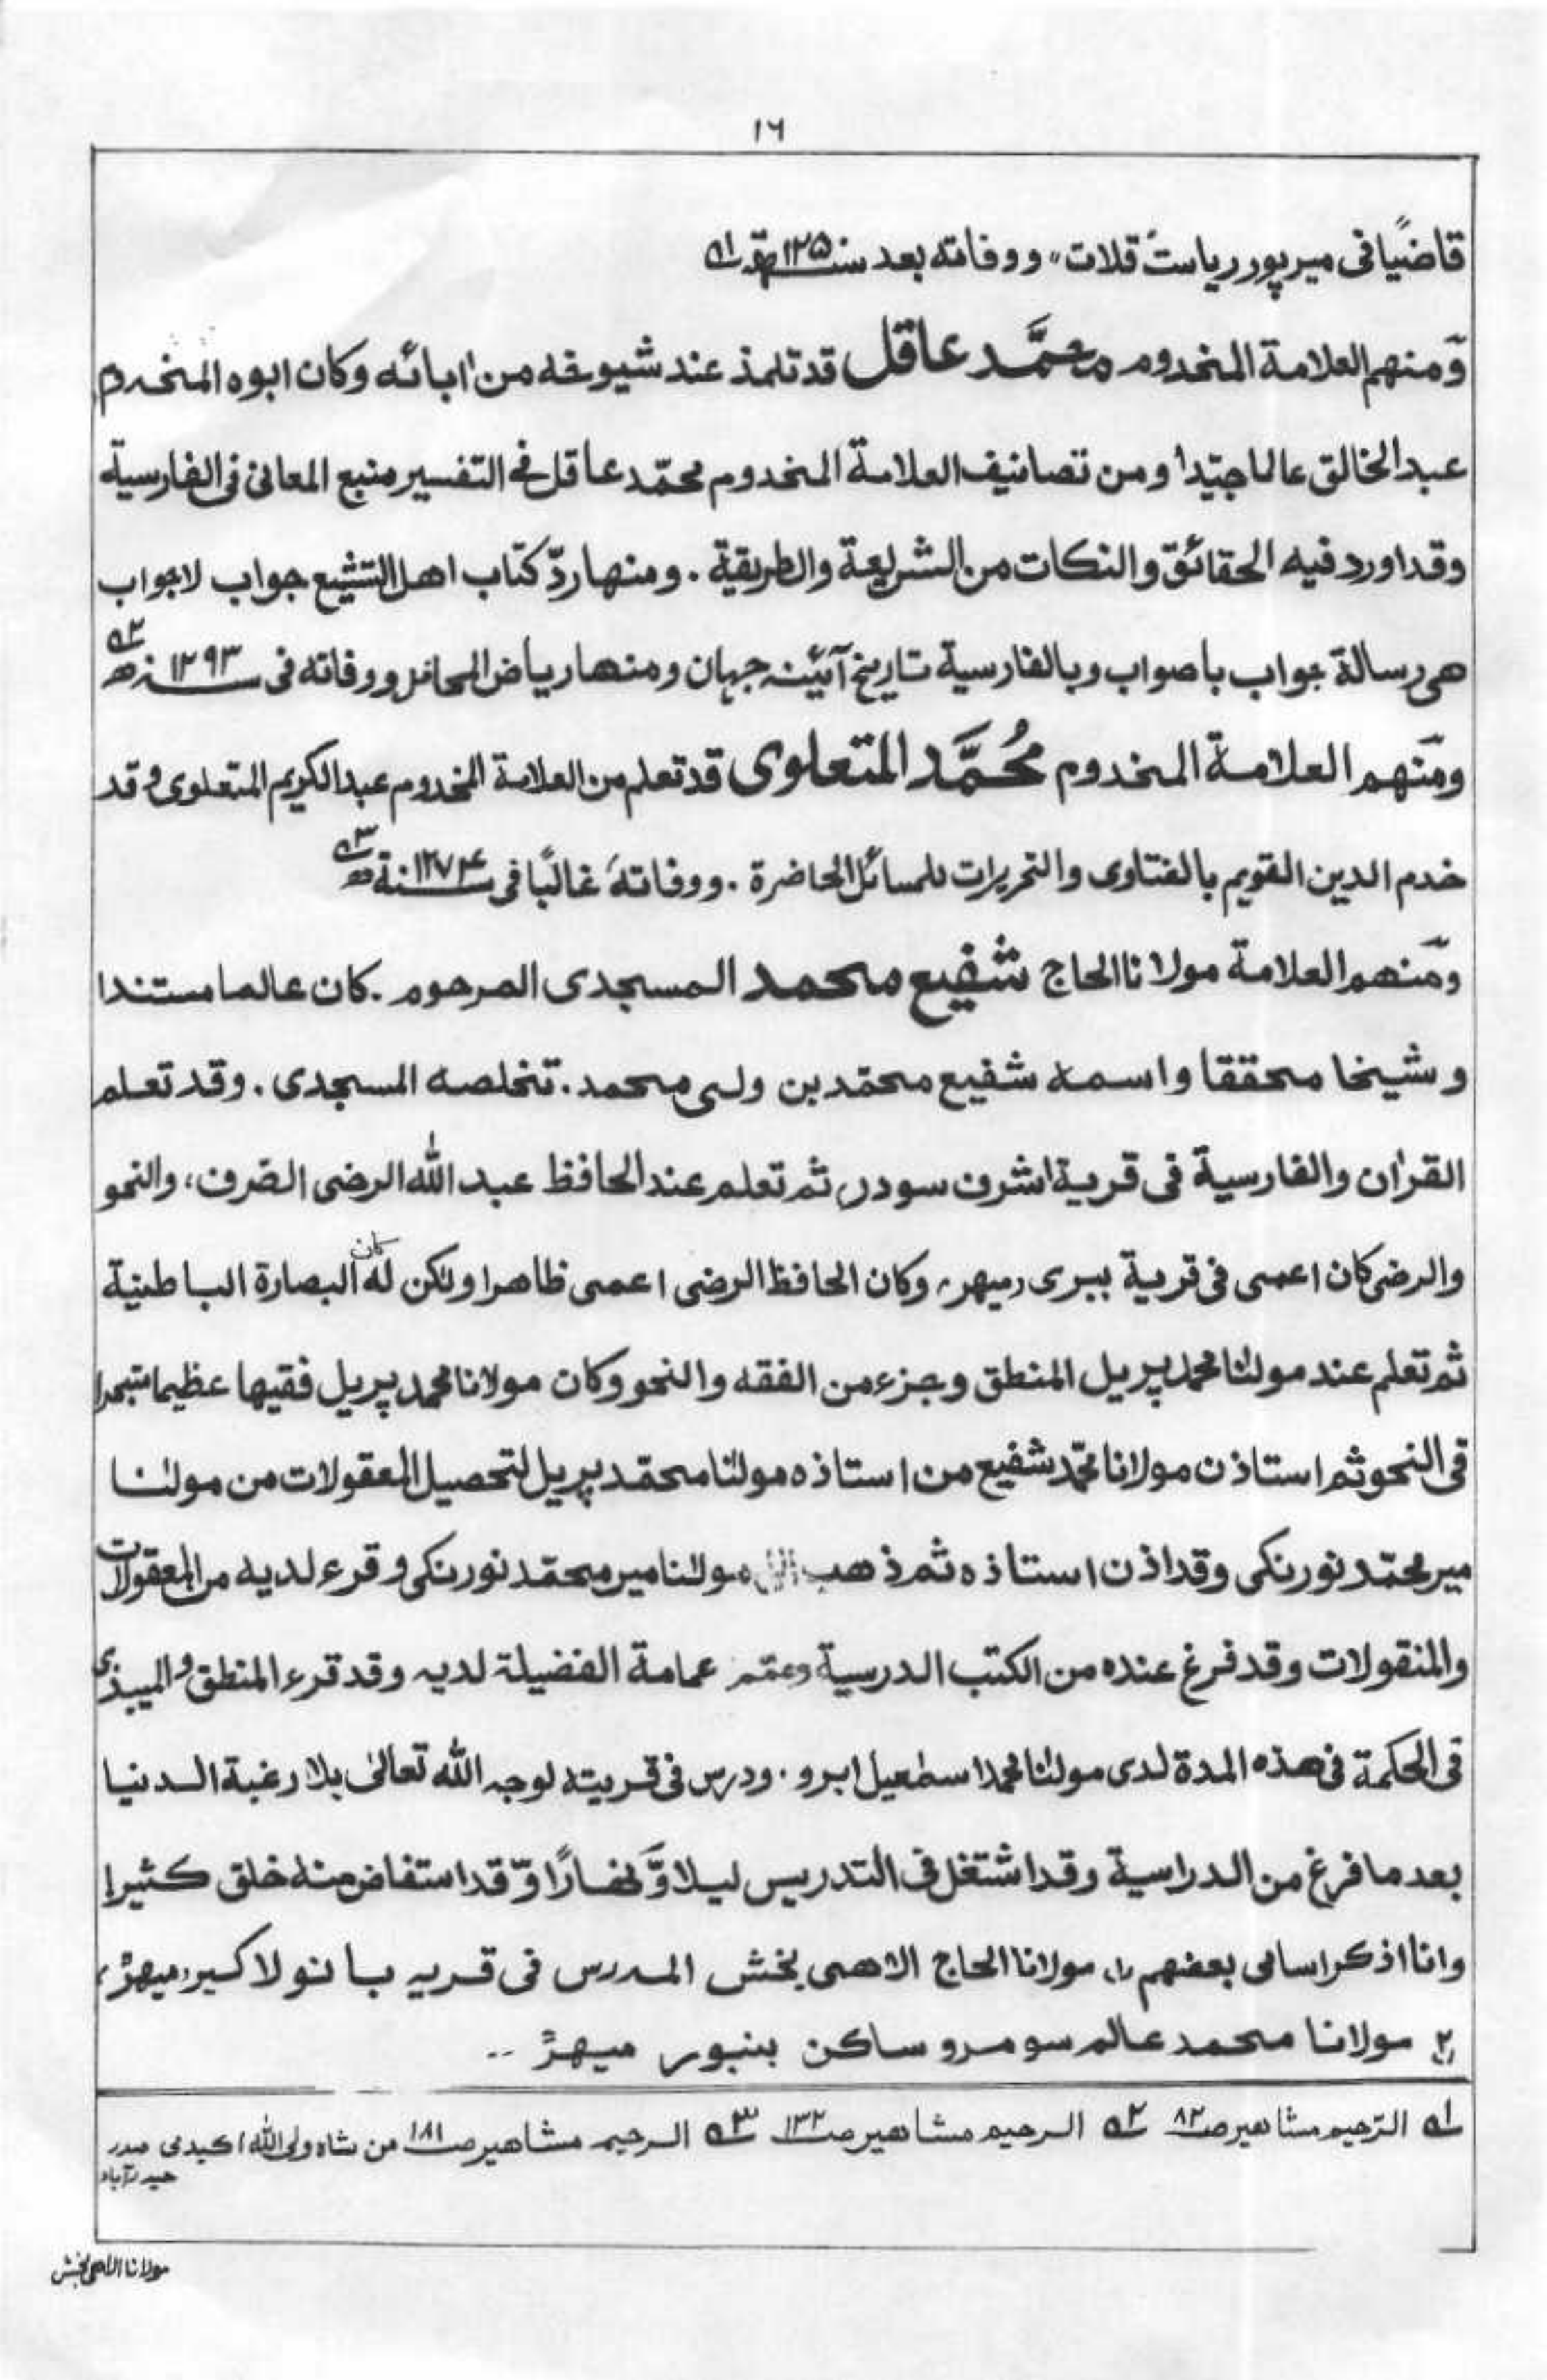 ١٦
قاضيًا فى ميرپور رياست قلات" ووفاته بعد سنة ١٢٥ھ ؎١
وَّمنهم العلامة المخدوم محمَّد عاقل قد تلمذ عند شيوخه من اٰبائه وكان ابوه المخدوم
عبد الخالق عالما جيّدا ومن تصانيف العلامة المخدوم محمّد عاقل فى التفسير منبع المعانى فى الفارسية
وقد اورد فيه الحقائق والنكات من الشريعة والطريقة . ومنها ردّ كتاب اهل التشيع جواب لاجواب
هى رسالة جواب باصواب وبالفارسية تاريخ آئينه جهان ومنها رياض المحافل ووفاته فى ١٢٩٣ سنه ھ ؎٢
ومّنهم العلامة المخدوم مُحمَّد المتعلوى قد تعلم من العلامة المخدوم عبد الكريم المتعلوى وقد
خدم الدين القويم بالفتاوى والتحريرات للمسائل الحاضرة . ووفاتهَ غالبًا فى ١٢٧٤ سنة ھ ؎٣
ومّنهم العلامة مولانا الحاج شفيع محمد المسجدى المرحوم . كان عالما مستندا
و شيخا محققا واسمه شفيع محمّد بن ولى محمد . تخلصه المسجدى . وقد تعلم
القراٰن والفارسية فى قرية اشرف سودر، ثم تعلم عند الحافظ عبد الله الرضى الصّرف، والنحو
والرضى كان اعمى فى قرية ببرى (ميهر) وكان الحافظ الرضى اعمى ظاهرا ولكن له كان البصارة الباطنية
ثم تعلم عند مولٰنا محمد پريل المنطق وجزء من الفقه والنحو وكان مولانا محمد پريل فقيها عظيما متبحرا
فى النحو ثم استاذن مولانا محمّد شفيع من استاذه مولٰنا محمّد پريل لتحصيل المعقولات من مولٰنا
مير محمّد نورنكى وقد اذن استاذه ثم ذهب الى مولٰنا مير محمّد نورنكى وقرء لديه من المعقولات
والمنقولات وقد فرغ عنده من الكتب الدرسية وعمّم عمامة الفضيلة لديه وقد قرء المنطق والميبذى
فى الحكمة فى هذه المدة لدى مولٰنا محمد اسمٰعيل ابرو . ودرس فى قريته لوجه الله تعالىٰ بلا رغبة الدنيا
بعد ما فرغ من الدراسية وقد اشتغل فى التدريس ليلا وَّنهارًا وّقد استفاض منه خلق كثيرا
وانا اذكر اسامى بعضهم (١) مولانا الحاج الاهى بخش المدرس فى قريه بانو لاكير (ميهڑ)
(٢) مولانا محمد عالم سومرو ساكن بنبور ميهڑ ..
؎١ الرّحيم مشاهير صـ٨٢ ؎٢ الرحيم مشاهير صـ١٣٢ ؎٣ الرحيم مشاهير صـ١٨١ من شاه ولى الله اكيڈمى صدر
حيدرآباد
مولانا الاهى بخش